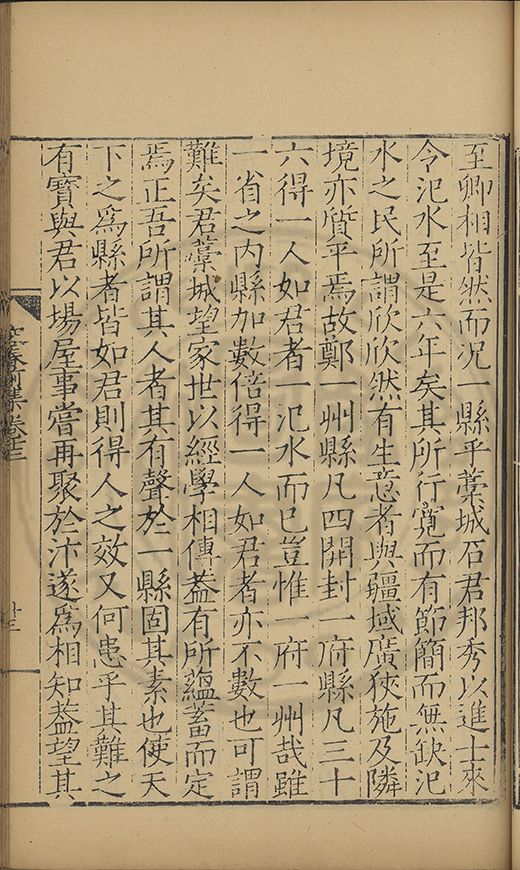 至卿相皆然而况一縣乎藁城石君邦秀以進士來
令汜水至是六年矣其所行寬而有節簡而無缺汜
水之民所謂欣欣然有生意者與疆域廣狹施及隣
境亦質平焉故鄭一州縣凡四開封一府縣凡三十
六得一人如君者一汜水而已豈惟一府一州哉雖
一省之内縣加數倍得一人如君者亦不數也可謂
難矣君藁城望家世以經學相傳葢有所蘊蓄而定
焉正吾所謂其人者其有聲於一縣固其素也使天
下之爲縣者皆如君則得人之效又何患乎其難之
有寳與君以場屋事嘗再聚於汴遂爲相知葢望其
前集卷十三
十三